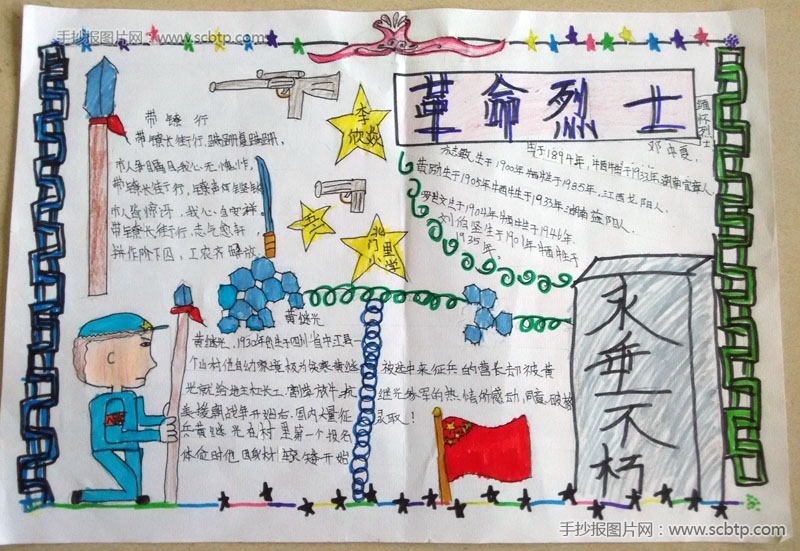 手抄报图片网：www.scbtp.com
革命烈士
缅怀烈士
带镣行
带镣长街行,蹒跚复蹒跚,
市人争瞩目,我心无愧怍。
带镣长街行,镣声何铿锵,
市人皆惊讶,我心自安祥。
带镣长街行,志气愈轩
拼作阶下囚,工农齐解放。
李欣焱
五一
北门里小学
邓中夏,
生于1894年,牺牲于1933年湖南宜章人
方志敏,生于1900年牺牲于1935年,江西弋阳人,
黄励生于1905年牺牲于1933年湖南益阳人.
罗世文生于1904年牺牲于1946年
刘伯坚生于1901年牺牲于
1935年,
黄继光
黄继光,1930年出生于四川省中江县一
个山村
光就给地主扛长工,割草放牛,抗
美援朝战争开始后,国内大量征
兵黄继光在村里第一个报名
体检时他因身材较矮开始
被选中来征兵的营长却被黄
继光参军的热情所感动,同意破格
录取！
永垂不朽
手抄报图片网：www.scbtp.com